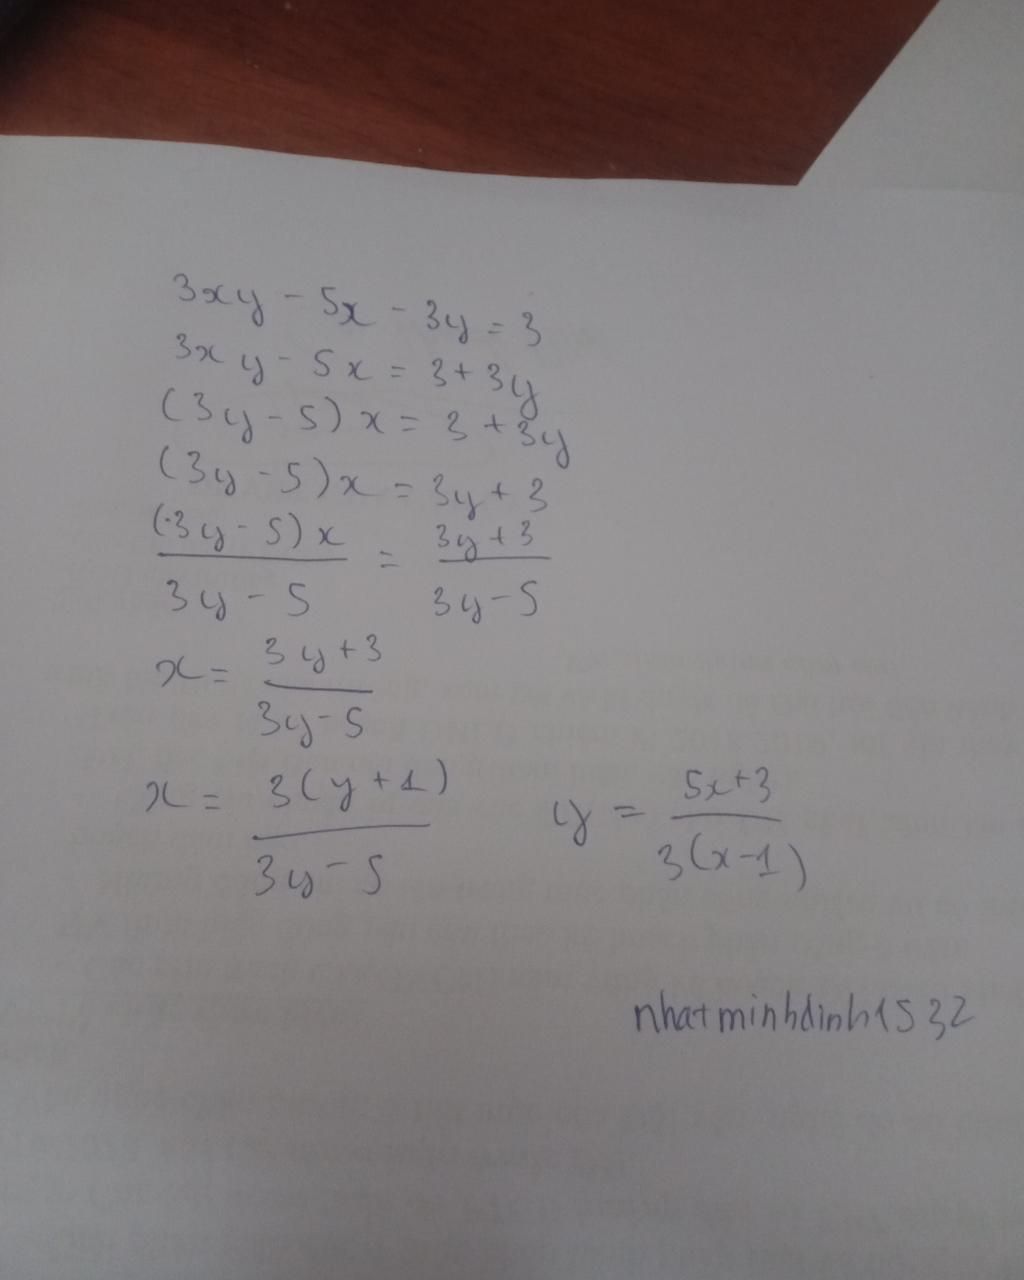 3xy - 5x - 3y = 3
3xy - 5x = 3 + 3y
(3y - 5) x = 3 + 3y
(3y - 5) x = 3y + 3
(3y - 5) x / 3y - 5 = 3y + 3 / 3y - 5
x = 3y + 3 / 3y - 5
x = 3(y + 1) / 3y - 5
y = 5x + 3 / 3(x - 1)
nhatminhdinh1532